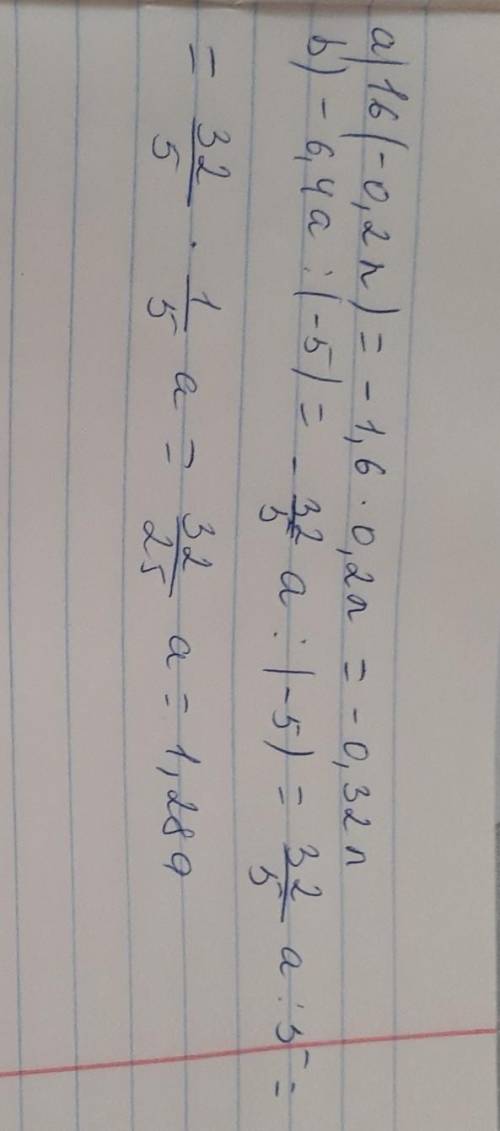 a) 16(-0,2n) = -1,6 · 0,2n = -0,32n
b) -6,4a : (-5) = -32/5 a : (-5) = 32/5 a : 5 =
= 32/5 · 1/5 a = 32/25 a = 1,28a